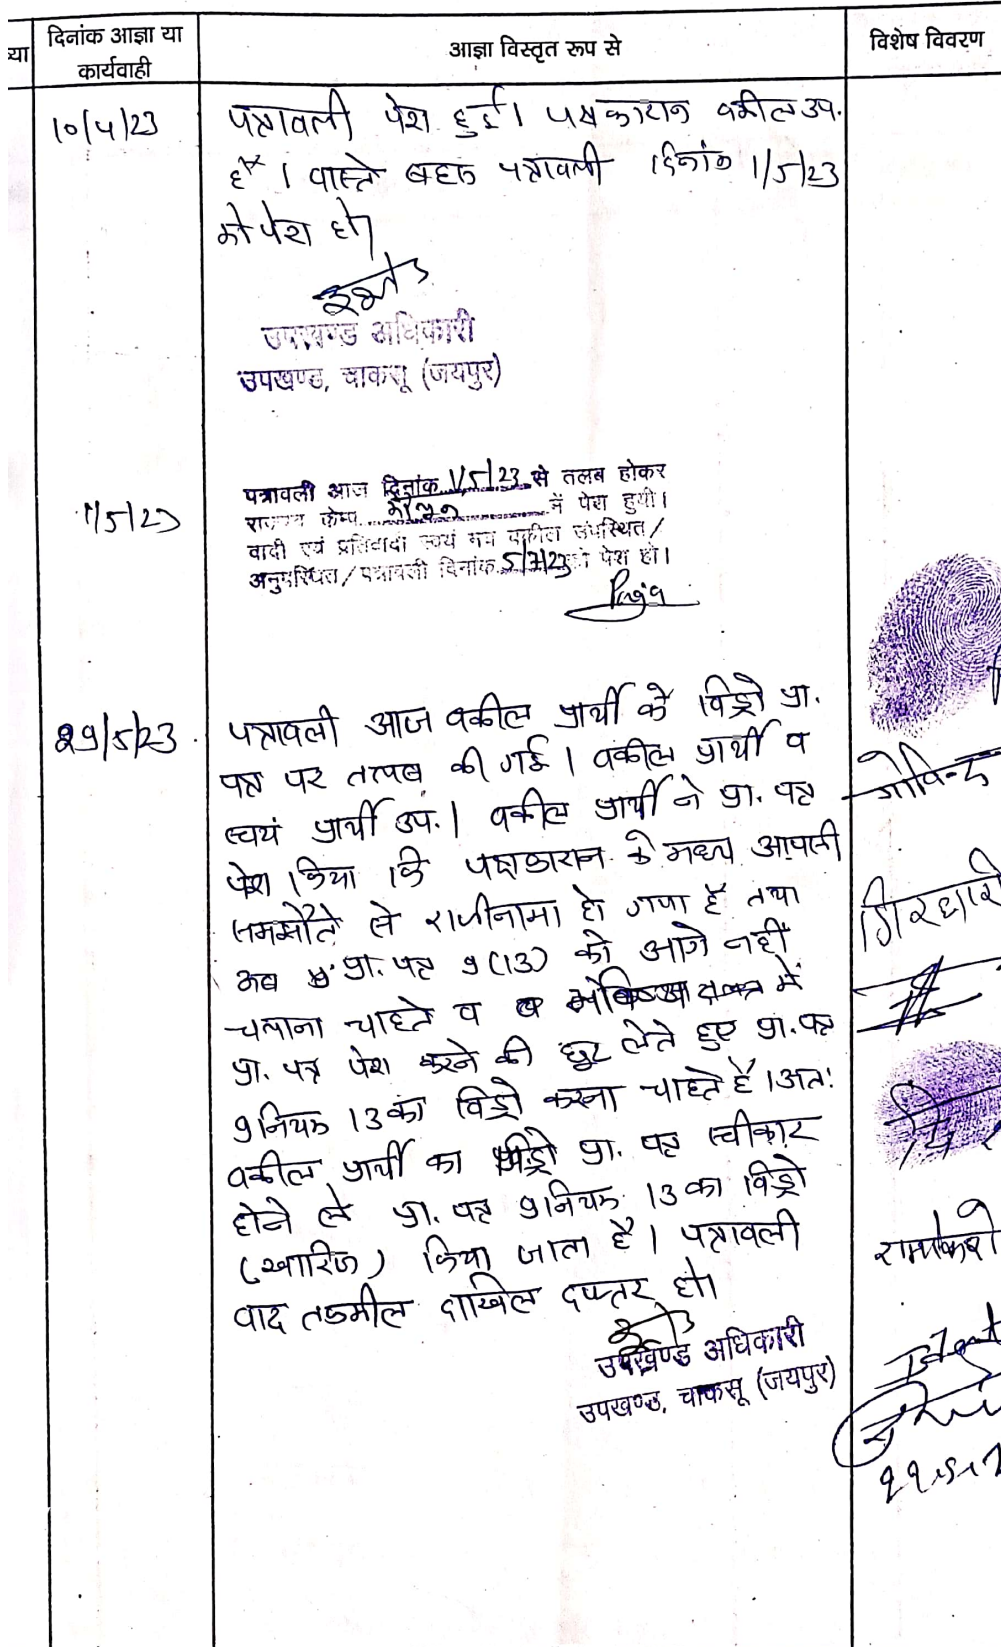 या
दिनांक आज्ञा या
कार्यवाही
आज्ञा विस्तृत रूप से
विशेष विवरण
10/4/23
पत्रावली पेश हुई। पक्षकारान वकील उप.
है। वास्ते बहस पत्रावली दिनांक 1/5/23
को पेश हो।
उपखण्ड अधिकारी
उपखण्ड, चाकसू (जयपुर)
1/5/23
पत्रावली आज दिनांक 1/5/23 से तलब होकर
राजस्व केम्प में पेश हुयी।
वादी एवं प्रतिवादी स्वयं मय वकील उपस्थित/
अनुपस्थित/पत्रावली दिनांक 5/7/23 को पेश हो।
29/5/23
पत्रावली आज वकील प्रार्थी के विड्रो प्रा.
पत्र पर तलब की गई। वकील प्रार्थी व
स्वयं प्रार्थी उप.। वकील प्रार्थी ने प्रा. पत्र
पेश किया कि पक्षकारान के मध्य आपसी
समझौते से राजीनामा हो गया है तथा
अब प्रा. पत्र 9(13) को आगे नहीं
चलाना चाहते व में
प्रा. पत्र पेश करने की छुट लेते हुए प्रा. पत्र
9 नियम 13 का विड्रो करना चाहते है। अतः
वकील प्रार्थी का विड्रो प्रा. पत्र स्वीकार
होने से प्रा. पत्र 9 नियम 13 का विड्रो
(खारिज) किया जाता है। पत्रावली
वाद तकमील दाखिल दफ्तर हो।
उपखण्ड अधिकारी
उपखण्ड, चाकसू (जयपुर)
गोविन्द
गिरधारी